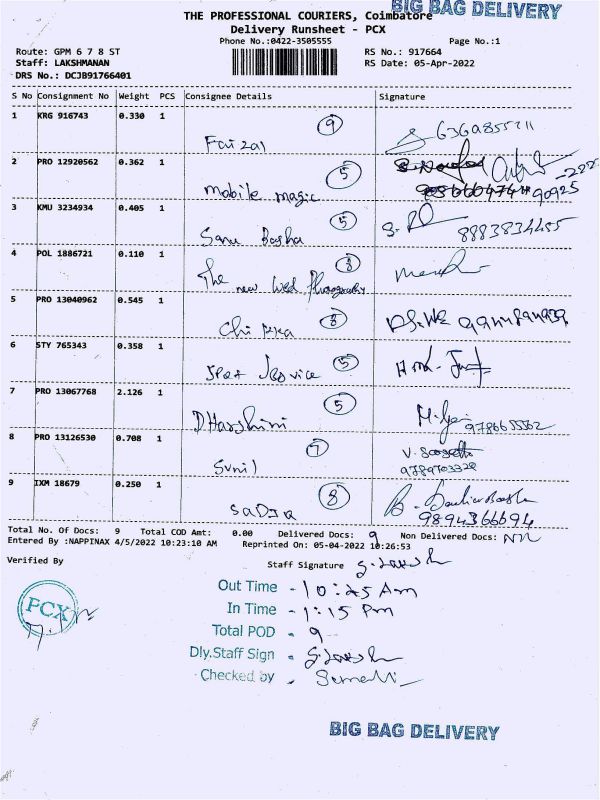 BIG BAG DELIVERY
THE PROFESSIONAL COURIERS, Coimbatore
Delivery Runsheet - PCX
Phone No.:0422-3505555 Page No.:1
Route: GPM 6 7 8 ST RS No.: 917664
Staff: LAKSHMANAN RS Date: 05-Apr-2022
DRS No.: DCJB91766401
S No Consignment No Weight PCS Consignee Details Signature
1 KRG 916743 0.330 1 9
Faizal
2 PRO 12920562 0.362 1 5
mobile magic 90925
3 KMU 3234934 0.405 1 5
Sanu Basha
4 POL 1886721 0.110 1 8
The new Wed Photography
5 PRO 13040962 0.545 1 8
6 STY 765343 0.358 1 5
7 PRO 13067768 2.126 1 5
DHarshini
8 PRO 13126530 0.708 1 7
Sunil 9789703328
9 IXM 18679 0.250 1 8
SADIQ 9894366694
Total No. Of Docs: 9 Total COD Amt: 0.00 Delivered Docs: 9 Non Delivered Docs:
Entered By :NAPPINAX 4/5/2022 10:23:10 AM Reprinted On: 05-04-2022 10:26:53
Verified By Staff Signature
PCX
Out Time - 10:25 Am
In Time - 1:15 Pm
Total POD - 9
Dly.Staff Sign -
Checked by -
BIG BAG DELIVERY